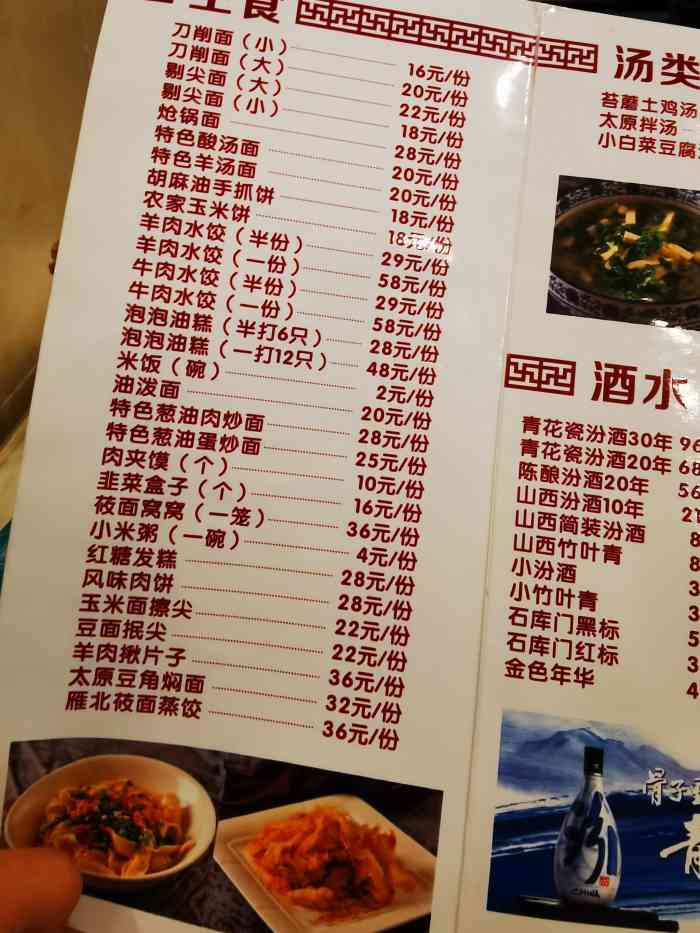 主食
刀削面（小） 16元/份
刀削面（大） 20元/份
剔尖面（大） 22元/份
剔尖面（小） 18元/份
炝锅面 28元/份
特色酸汤面 20元/份
特色羊汤面 20元/份
胡麻油手抓饼 18元/份
农家玉米饼 18元/份
羊肉水饺（半份） 29元/份
羊肉水饺（一份） 58元/份
牛肉水饺（半份） 29元/份
牛肉水饺（一份） 58元/份
泡泡油糕（半打6只） 28元/份
泡泡油糕（一打12只） 48元/份
米饭（碗） 2元/份
油泼面 20元/份
特色葱油肉炒面 28元/份
特色葱油蛋炒面 25元/份
肉夹馍（个） 10元/份
韭菜盒子（个） 16元/份
莜面窝窝（一笼） 36元/份
小米粥（一碗） 4元/份
红糖发糕 28元/份
风味肉饼 28元/份
玉米面擦尖 22元/份
豆面抿尖 22元/份
羊肉揪片子 36元/份
太原豆角焖面 32元/份
雁北莜面蒸饺 36元/份
汤类
苔蘑土鸡汤
太原拌汤
小白菜豆腐
酒水
青花瓷汾酒30年
青花瓷汾酒20年
陈酿汾酒20年
山西汾酒10年
山西简装汾酒
山西竹叶青
小汾酒
小竹叶青
石库门黑标
石库门红标
金色年华
骨子
CHINA